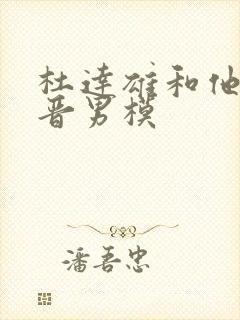 杜达雄和他
晋男模
潘吾忠